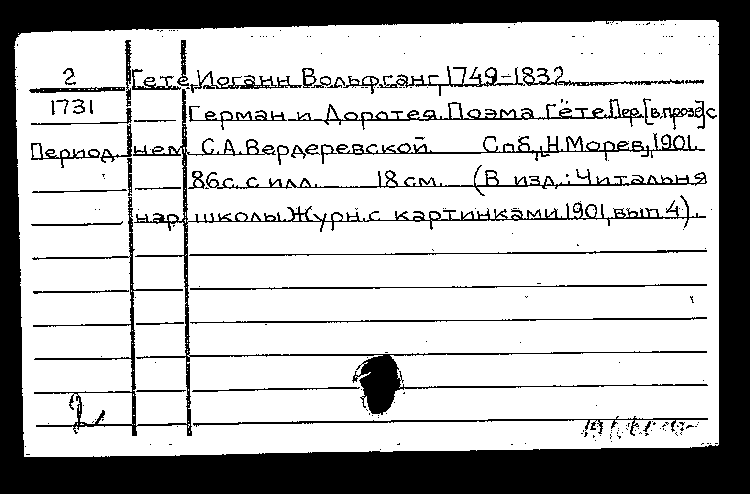 2 Гете, Иоганн Вольфганг, 1749-1832
1731 Герман и Доротея. Поэма Гёте. Пер. [в прозе] с
Период. нем. С.А. Вердеревской Спб., Н. Морев, 1901.
86 с. с илл. 18 см. (В изд.: Читальня
нар. школы. Журн. с картинками. 1901, вып. 4).
2